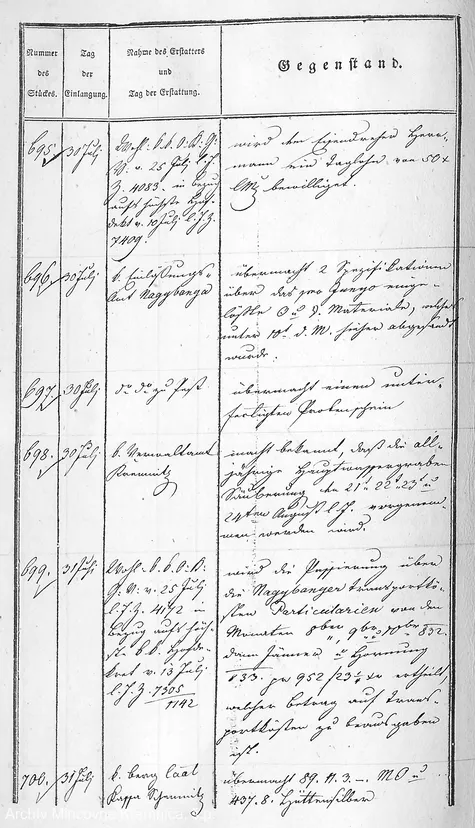 Nummer
des
Stückes.
Tag
der
Einlangung.
Nahme des Erstatters
und
Tag der Erstattung.
Gegenstand.
695.
30 Julj
Wohl. k. k. O. B. G.
v. 25 Julj l. J.
Z. 4083. in bezug
aufs höchste Hof-
dekt v. 10 Julj l. J. Z.
7409.
wird dem Eisendreher Herr-
mann ein Taglohn von 50 x
CMz bewilliget.
696.
30 Julj
k. Einlösungs-
Amt Nagybanya
übermacht 2 Spezifikationen
über das pro einge-
löste Materiale, welches
unter 10t d. M. hieher abgesandt
wurde.
697.
30 Julj
do do zu Pest
übermacht einen unter-
fertigten Probenschein
698.
30 Julj
k. Verwaltamt
Kremnitz
macht bekannt, daß die all-
jährige Hauptwassergraben
Säuberung den 21t 22t 23t u
24ten August l. J. vorgenom-
men werden wird.
699.
31 Julj
Wohl. k. k. O. B.
G. v. 25 Julj
l. J. Z. 4172 in
bezug aufs höch-
ste k. k. Hofde-
kret v. 13 Julj
l. J. Z. 7305
1142
wird die Passierung über
die Nagybanyer Transportko-
sten Particularien von den
Monaten 8ber, 9ber u 10ber 832.
dann Jänner u Hornung
833. pr 952 f 23 xr ertheilt,
welcher Betrag auf Trans-
portkosten zu beausgaben
ist.
700.
31 Julj
k. berg Caal
Kassa Schemnitz
übermacht 89. 11. 3. –. MO u
437. 8. Hüttensilber
Archiv Mincovne Kremnica